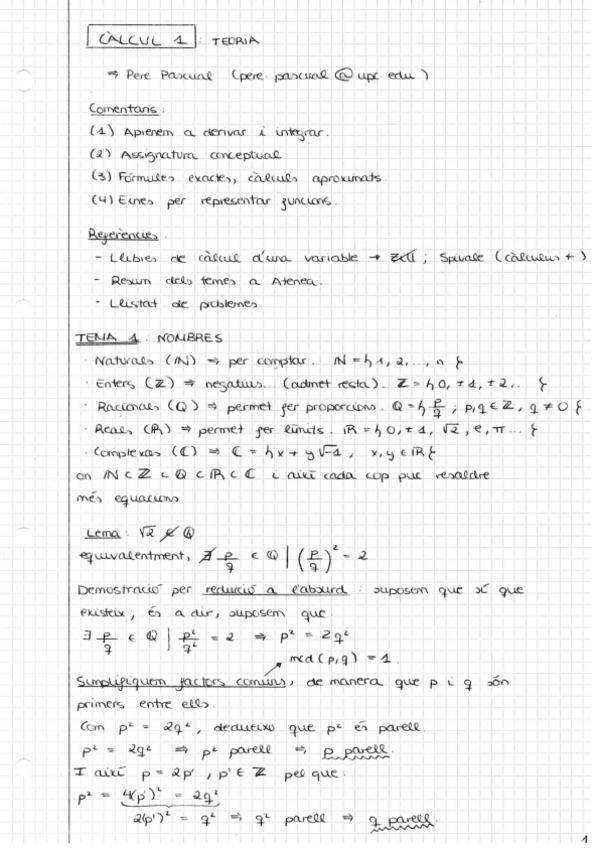 CÀLCUL 1 : TEORIA
⇒ Pere Pascual (pere.pascual@upc.edu)
Comentaris:
(1) Aprenem a derivar i integrar.
(2) Assignatura conceptual
(3) Fórmules exactes, càlculs aproximats.
(4) Eines per representar funcions.
Referències.
- Llibres de càlcul d'una variable → ; Spivak (càlculus +)
- Resum dels temes a Atenea.
- Llistat de problemes.
TEMA 1. NOMBRES
· Naturals (ℕ) ⇒ per comptar. ℕ = {1, 2, ..., n}
· Enters (ℤ) ⇒ negatius... (admet resta). ℤ = {0, ±1, ±2, .. }
· Racionals (ℚ) ⇒ permet fer proporcions. ℚ = {p/q ; p,q ∈ ℤ, q ≠ 0}
· Reals (ℝ) ⇒ permet fer límits. ℝ = {0, ±1, √2, e, π... }
· Complexos (ℂ) ⇒ ℂ = {x + y√-1, x, y ∈ ℝ}
on ℕ ⊂ ℤ ⊂ ℚ ⊂ ℝ ⊂ ℂ i així cada cop puc resoldre
més equacions
Lema: √2 ∉ ℚ
equivalentment, ∄ p/q ∈ ℚ | (p/q)² = 2
Demostració per reducció a l'absurd: suposem que sí que
existeix; és a dir, suposem que:
∃ p/q ∈ ℚ | p²/q² = 2 ⇒ p² = 2q²
mcd(p,q) = 1.
Simplifiquem factors comuns, de manera que p i q són
primers entre ells.
Com p² = 2q², dedueixo que p² és parell.
p² = 2q² ⇒ p² parell ⇒ p parell.
I així p = 2p', p' ∈ ℤ pel que:
p² = 4(p')² = 2q²
2(p')² = q² ⇒ q² parell ⇒ q parell.
1